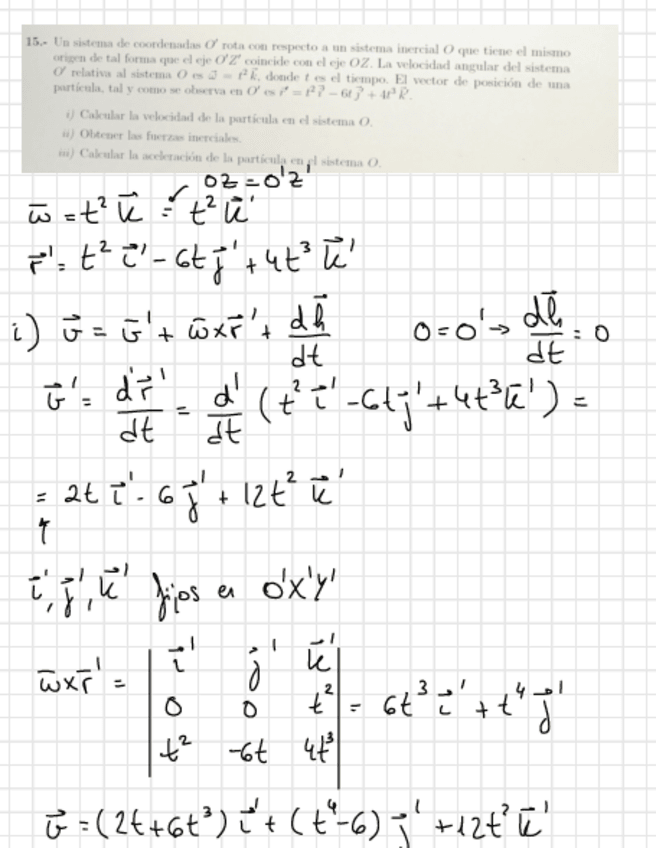 15.- Un sistema de coordenadas O' rota con respecto a un sistema inercial O que tiene el mismo
origen de tal forma que el eje O'Z' coincide con el eje OZ. La velocidad angular del sistema
O' relativa al sistema O es ω⃗ = t² k⃗, donde t es el tiempo. El vector de posición de una
partícula, tal y como se observa en O' es r⃗' = t² i⃗' − 6t j⃗' + 4t³ k⃗'.
i) Calcular la velocidad de la partícula en el sistema O.
ii) Obtener las fuerzas inerciales.
iii) Calcular la aceleración de la partícula en el sistema O.
OZ = O'Z'
ω̄ = t² k⃗ = t² k⃗'
r⃗' = t² i⃗' - 6t j⃗' + 4t³ k⃗'
i) v⃗ = v̄' + ω̄ x r⃗' + dh⃗/dt    O = O' → dh⃗/dt = 0
v⃗' = d'r⃗'/dt = d'/dt (t² i⃗' - 6t j⃗' + 4t³ k̄') =
= 2t i⃗' - 6 j⃗' + 12t² k⃗'
↑
i⃗', j⃗', k⃗' fijos en O'X'Y'
ω̄ x r̄' = | i⃗' j⃗' k⃗' |
| 0 0 t² | = 6t³ i⃗' + t⁴ j⃗'
| t² -6t 4t³ |
v⃗ = (2t + 6t³) i⃗' + (t⁴ - 6) j⃗' + 12t² k⃗'